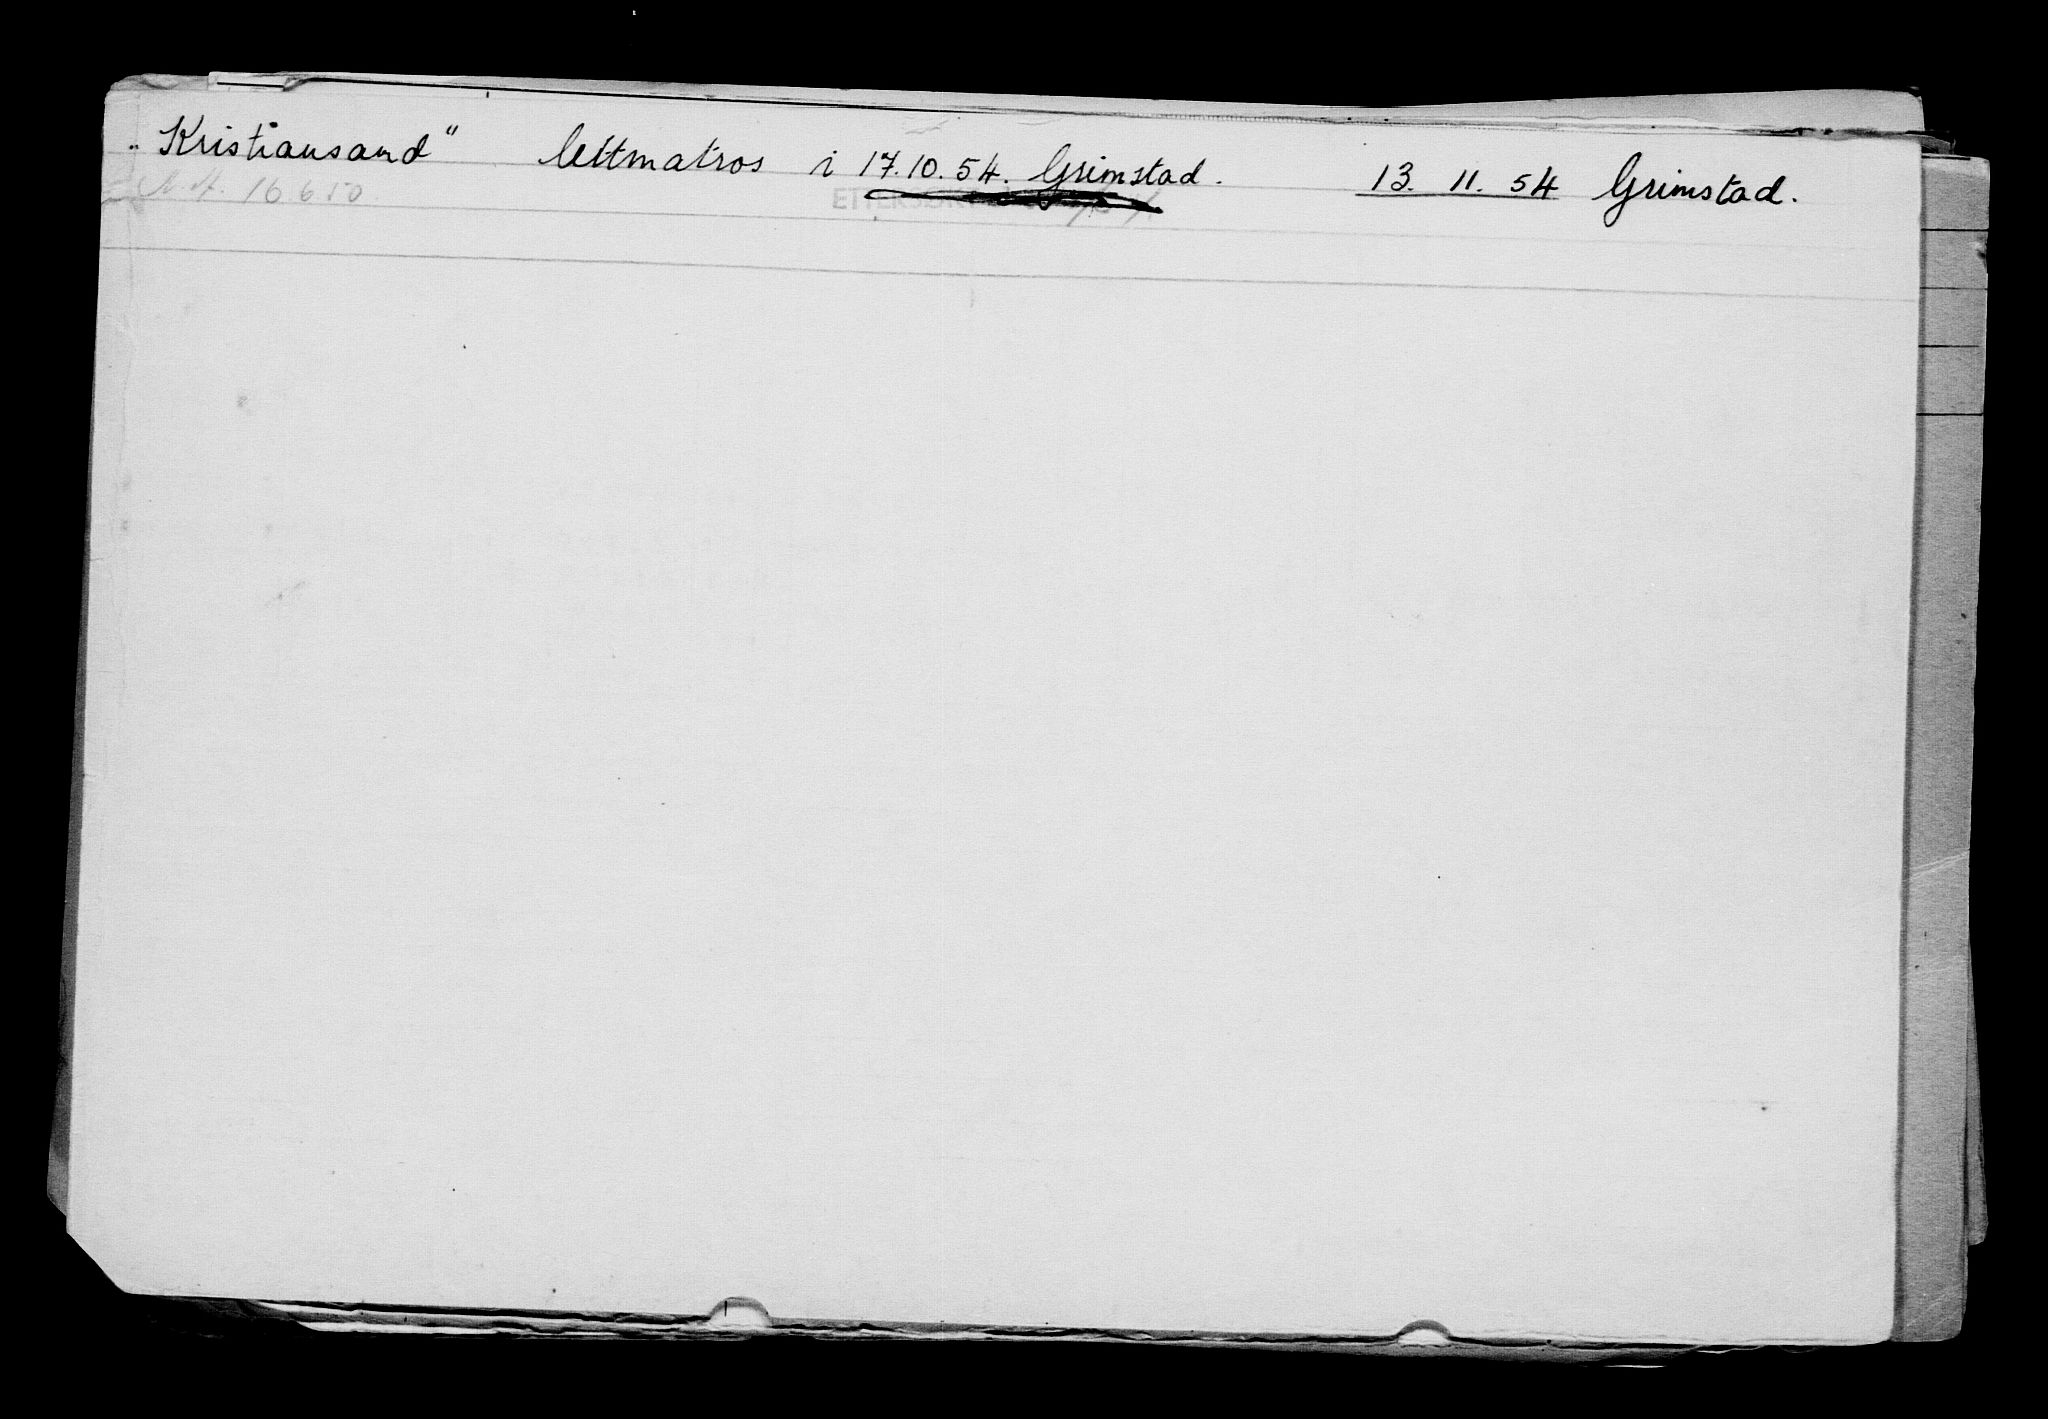 „Kristiansand" lettmatros i 17.10.54. Grimstad. 13. 11. 54 Grimstad.
16650